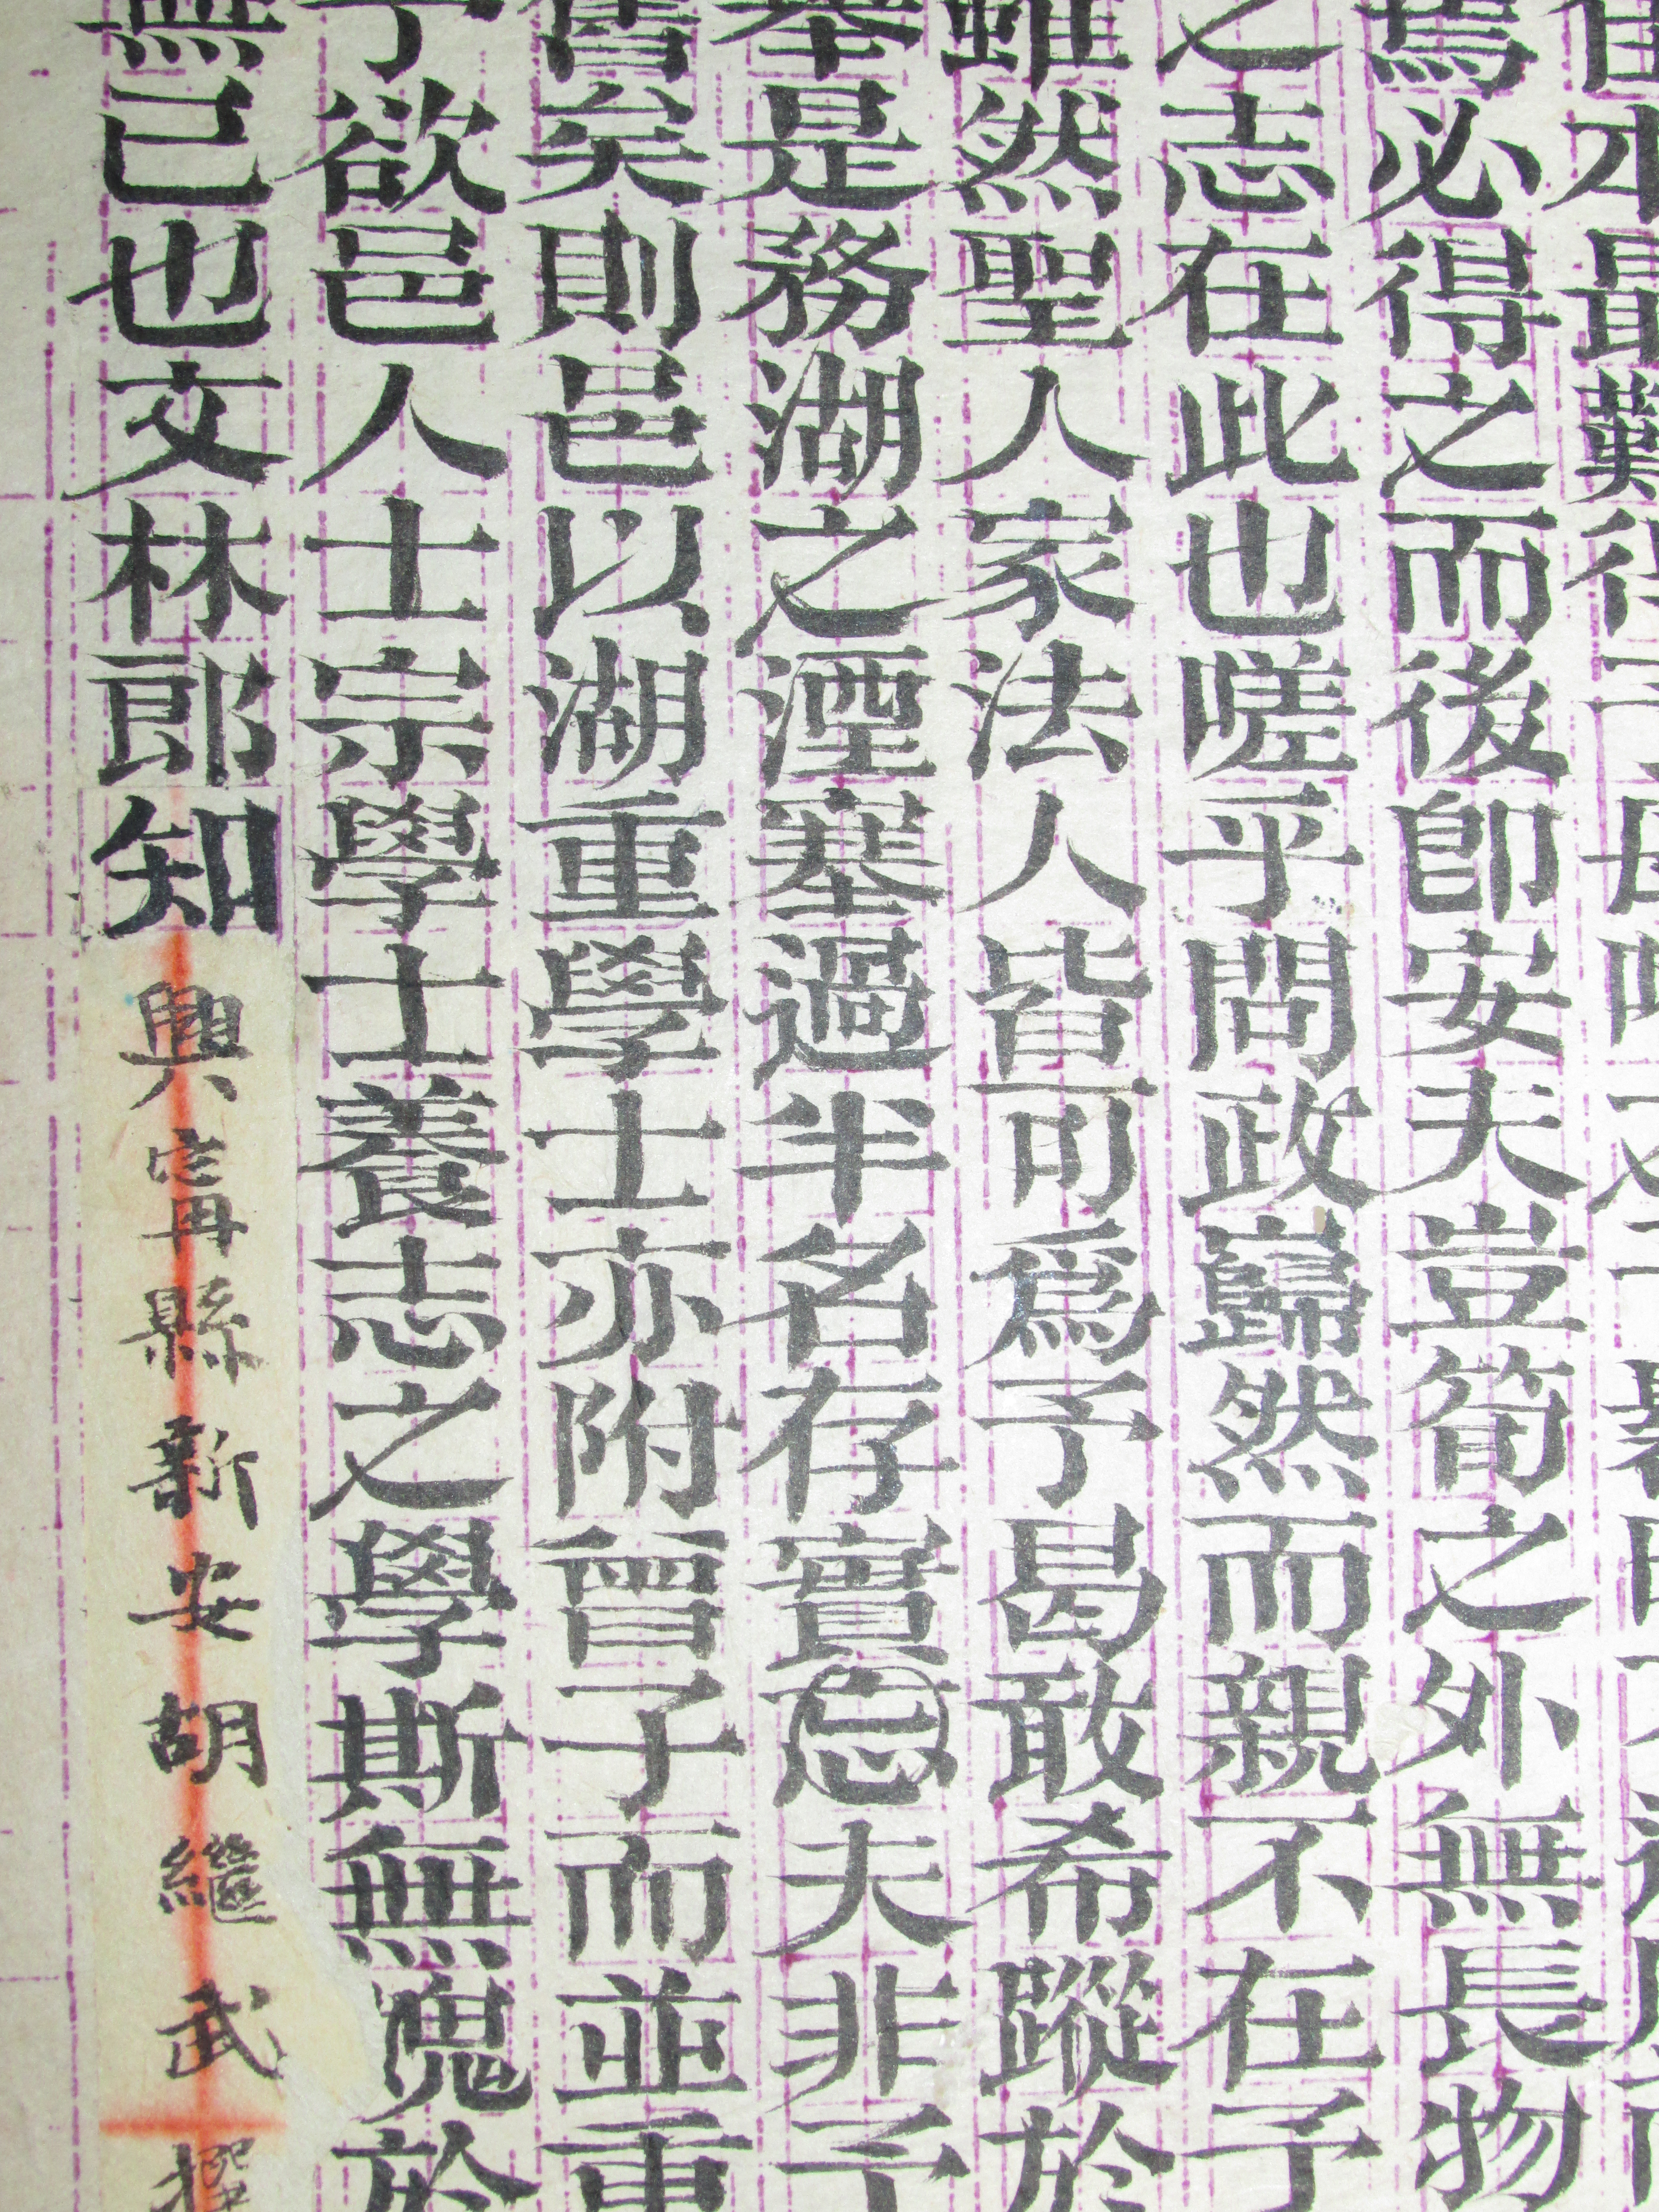 本最難得
焉必得之而後即安夫豈筍之外無長物
之志在此也嗟乎問政巋然而親不在予
雖然聖人家法人皆可爲予曷敢希蹤於
奉是務湖之湮塞過半名存實忘夫非予
舊矣則邑以湖重學士亦附曾子而並重
予欲邑人士宗學士養志之學斯無愧於
無己也文林郎知興甯縣新安胡繼武撰